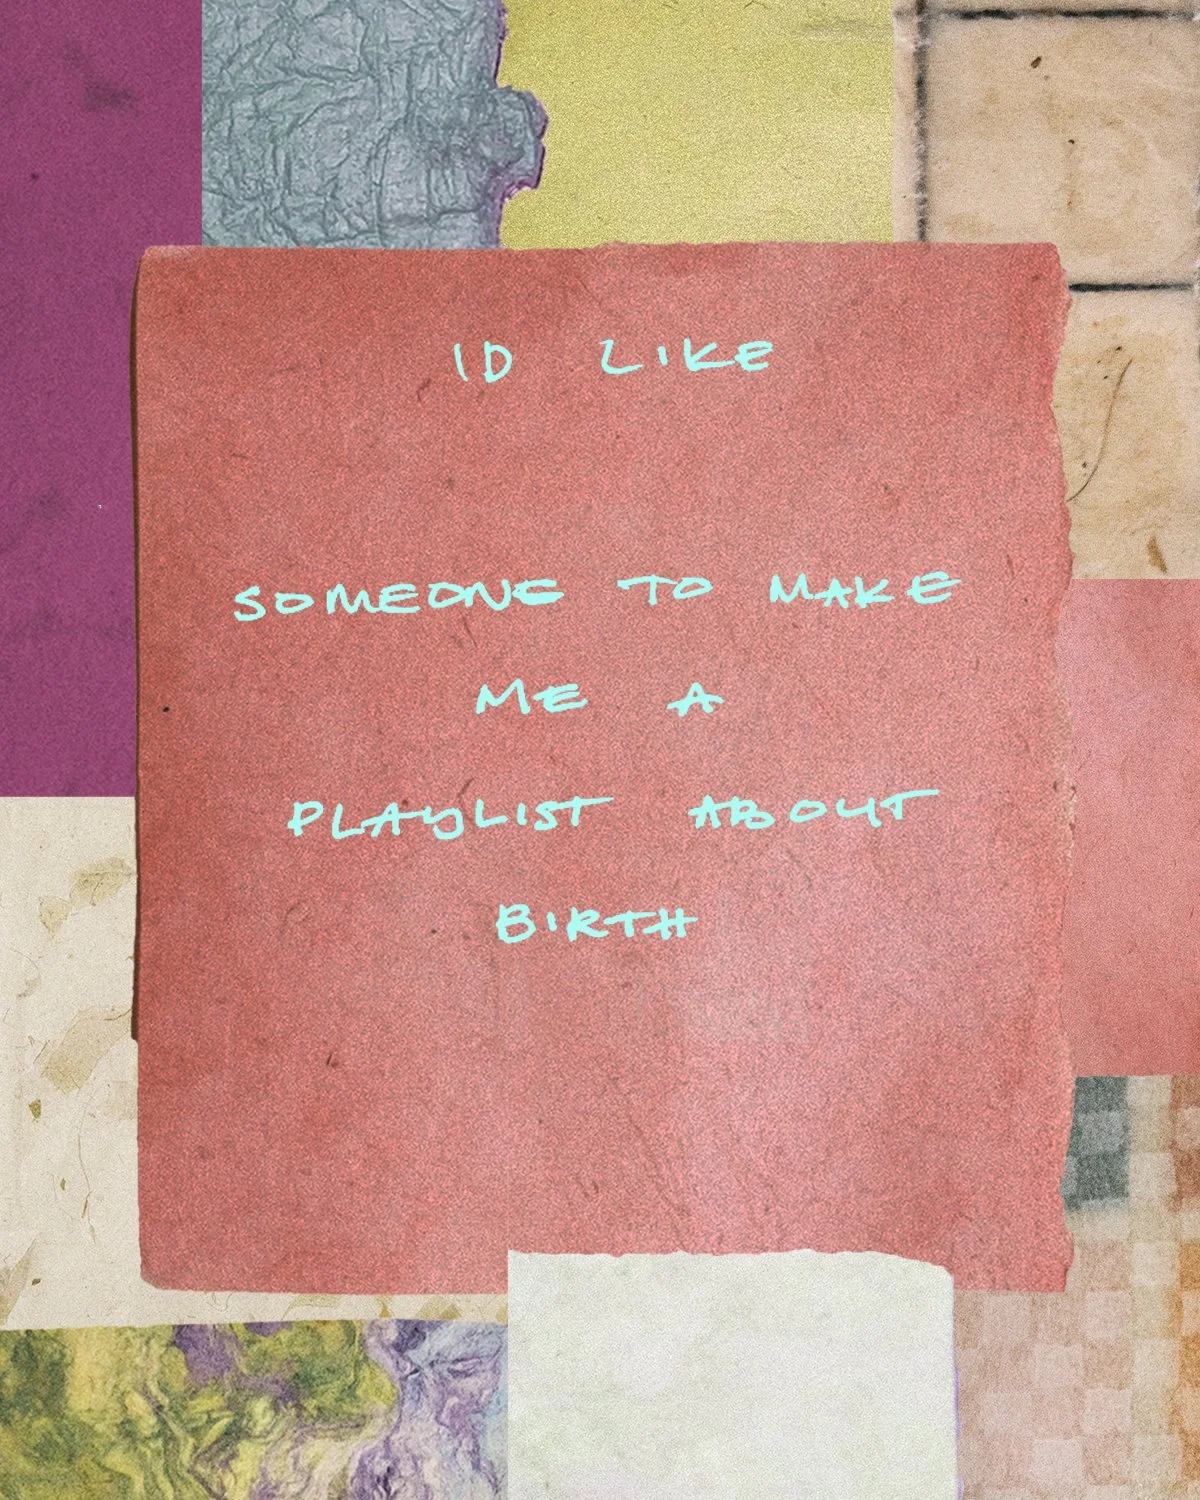 ID LIKE
SOMEONE TO MAKE
ME A
PLAYLIST ABOUT
BIRTH